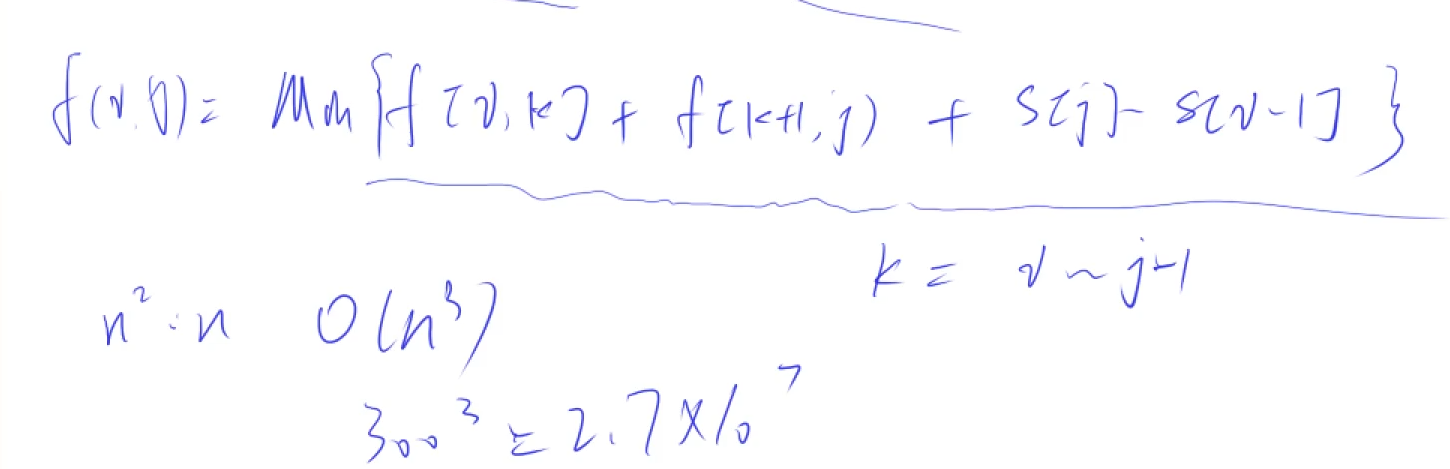 f(i,j) = Min{f[i,k] + f[k+1,j) + S[j] - S[i-1]}
k = i ~ j-1
n²·n O(n³)
300³ = 2.7×10⁷